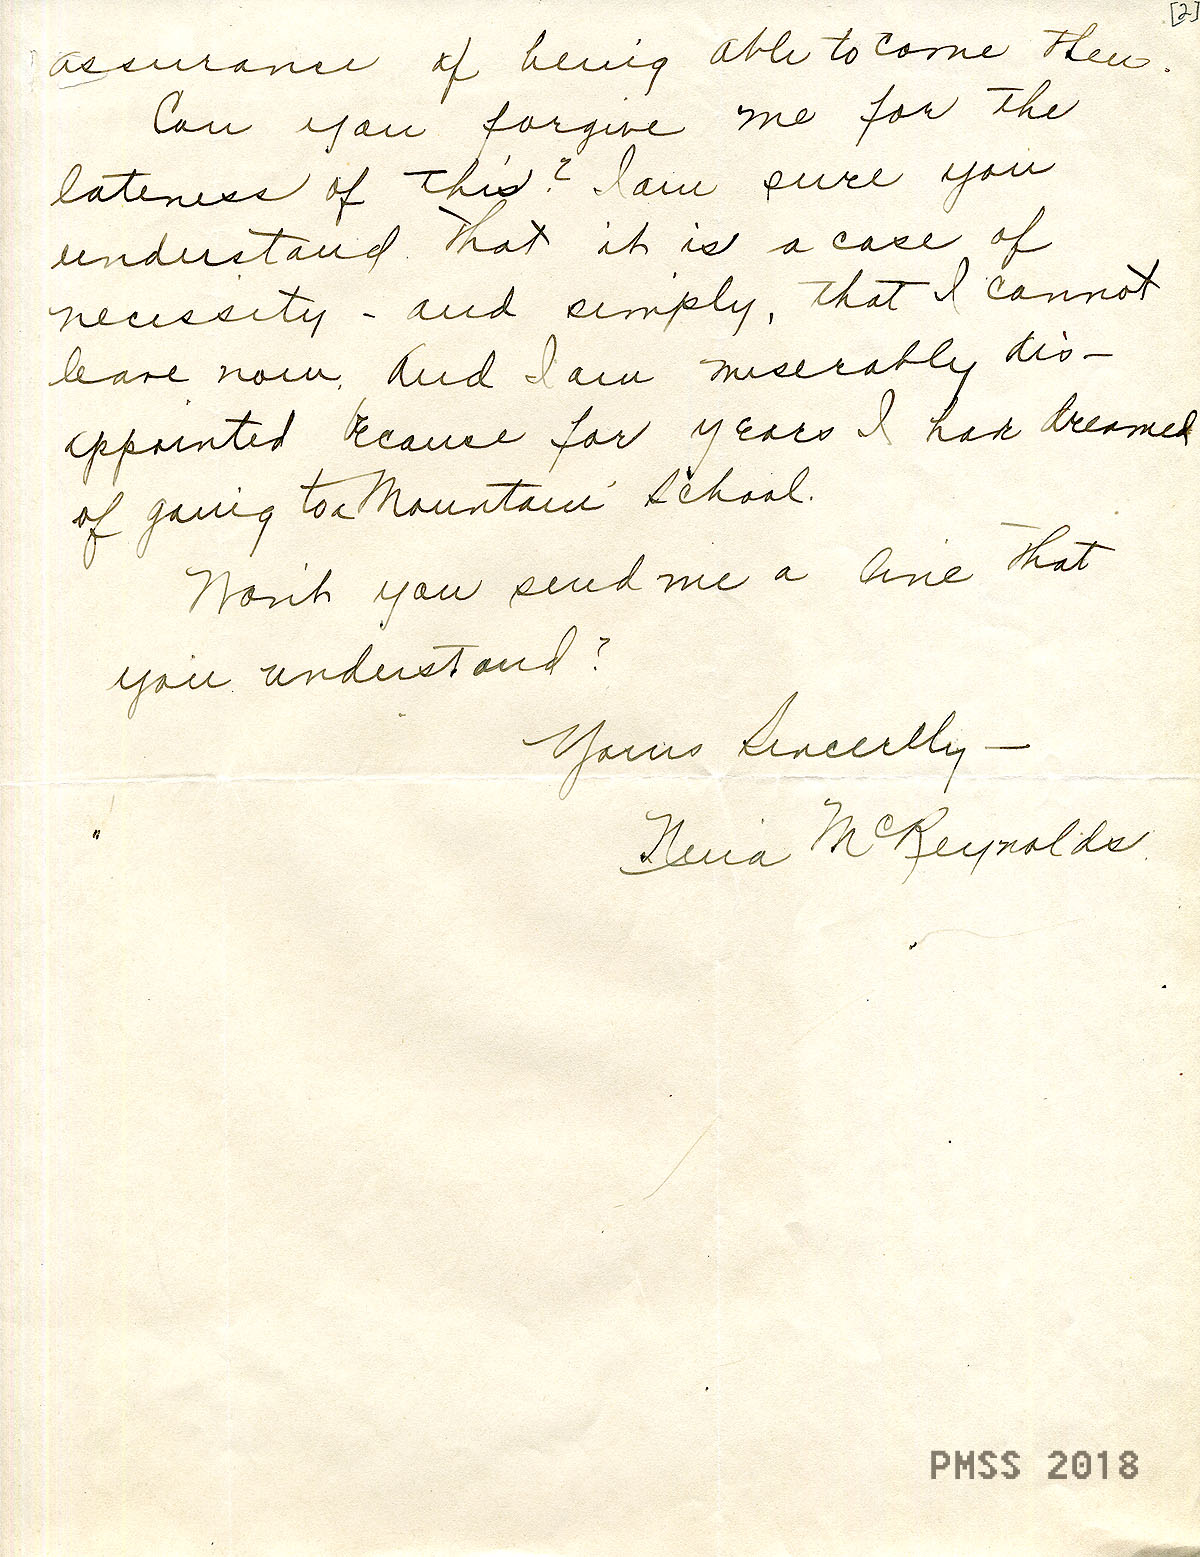 [2]
assurance of being able to come then.
Can you forgive me for the
lateness of this? I am sure you
understand that it is a case of
necessity - and simply, that I cannot
leave now. And I am miserably dis-
appointed because for years I have dreamed
of going to a Mountain School.
Won't you send me a line that
you understand?
Yours Sincerely —
McReynolds
PMSS 2018